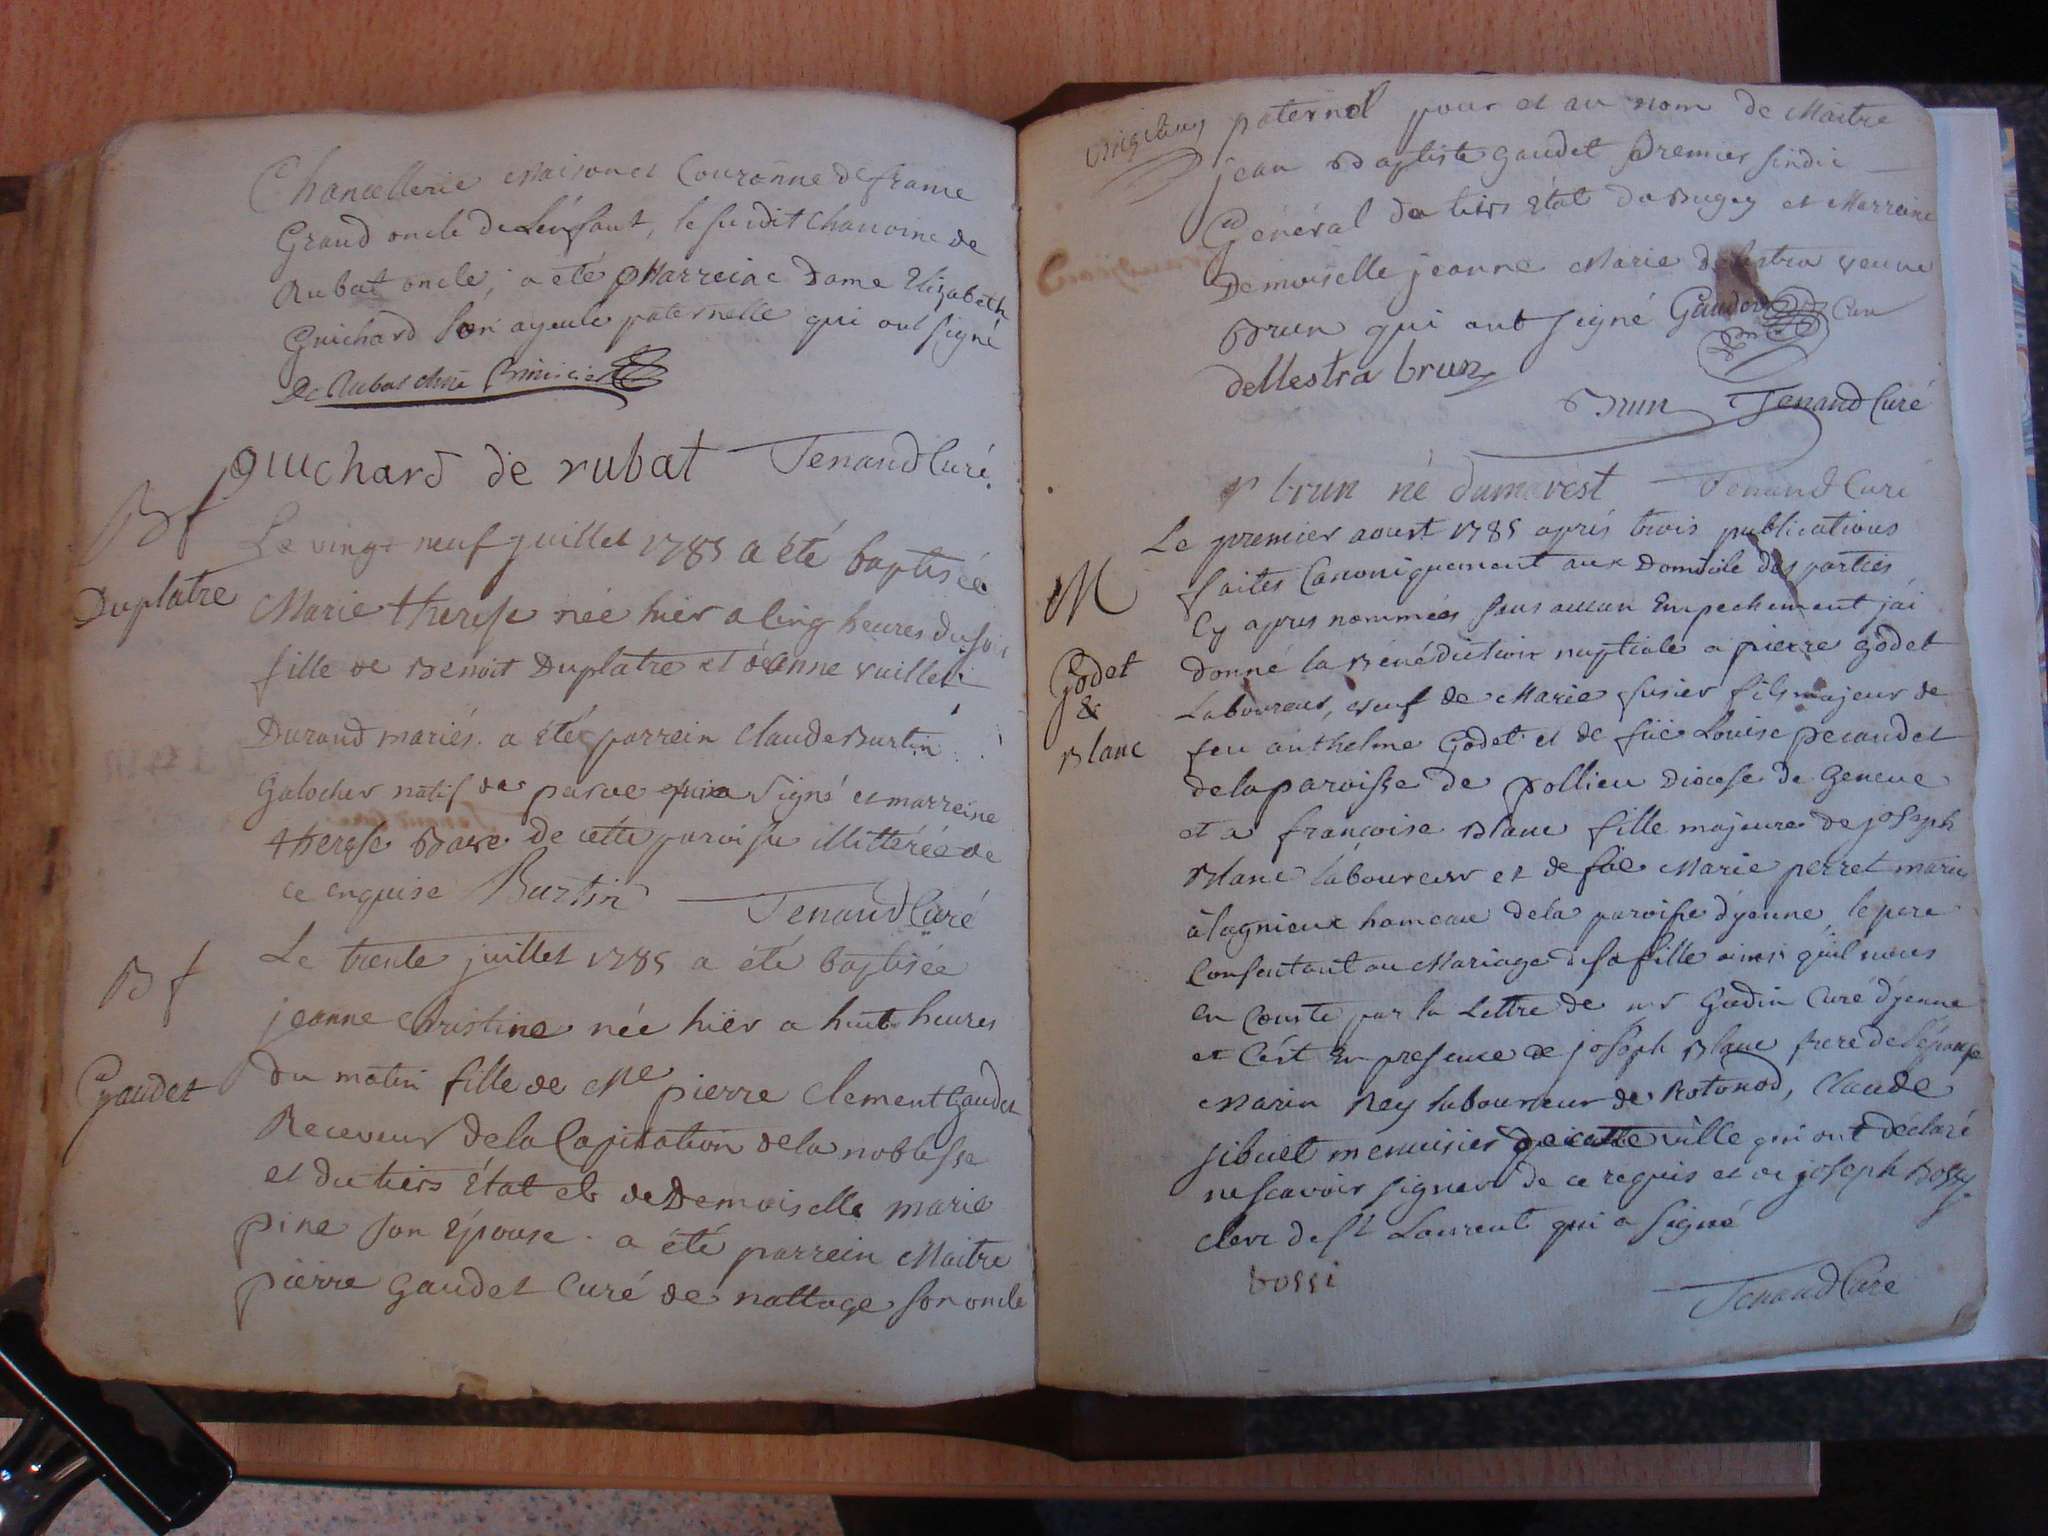 Chancellerie Maison et Couronne de france
Grand oncle de L'enfant, le susdit Chanoine de
Rubat oncle, a été Marreine Dame Elizabeth
Guichard son ayeule paternelle qui ont signé
De Rubat
guichard de rubat Tenand Curé.
Bf
Le vingt neuf juillet 1785 a été baptisée
Duplatre
Marie therese née hier a cinq heures du soir
fille de Benoit Duplatre et vaillet
Durand mariés. a été parrein Claude Burtin
Galocher natif de parve qui a signé et marreine
therese de cette paroisse illitérée de
ce enquise Burtin Tenand Curé
Bf
Le trente juillet 1785 a été baptisée
jeanne Christine née hier a huit heures
Gaudet
du matin fille de Me pierre Clement Gaudet
Receveur de la Capitation de la noblesse
et du tiers État et de Demoiselle marie
pine son épouse. a été parrein Maitre
pierre Gaudet Curé de nattage son oncle
paternel pour et au nom de Maitre
jean Baptiste gaudet Premier sindic
Général du tiers état du Bugey et Marreine
Demoiselle jeanne Marie delestra veuve
Brun qui ont signé Gaudet
dellestra brun
Brun Tenand Curé
brun né dumarest Tenand Curé
Le premier aoust 1785 aprés trois publications
M
faites Canoniquement aux Domicile des parties
Cy apres nommées sans aucun Empechement j'ai
Godet
&
Blanc
donné la Bénédiction nuptiale a pierre godet
Laboureur, veuf de Marie susier fils majeur de
feu anthelme Godet et de füe Louise pecaudet
de la paroisse de pollieu Diocese de Geneve
et a françoise Blanc fille majeure de joseph
Blanc laboureur et de füe Marie perret mariés
à lagnieux hameau de la paroisse d'yenne, le pere
Consentant au Mariage de sa fille ainsi qu'il nous
en Conste par la Lettre de mr Gudin Curé d'yenne
et C'ést En presence de joseph Blanc frere de l'épouse
Marin Rey laboureur de Rotonod, Claude
sibuet menuisier de cette ville qui ont déclaré
ne scavoir signer de ce requis et de joseph Bossy
clerc de St Laurent qui a signé
bossi
Tenand Curé